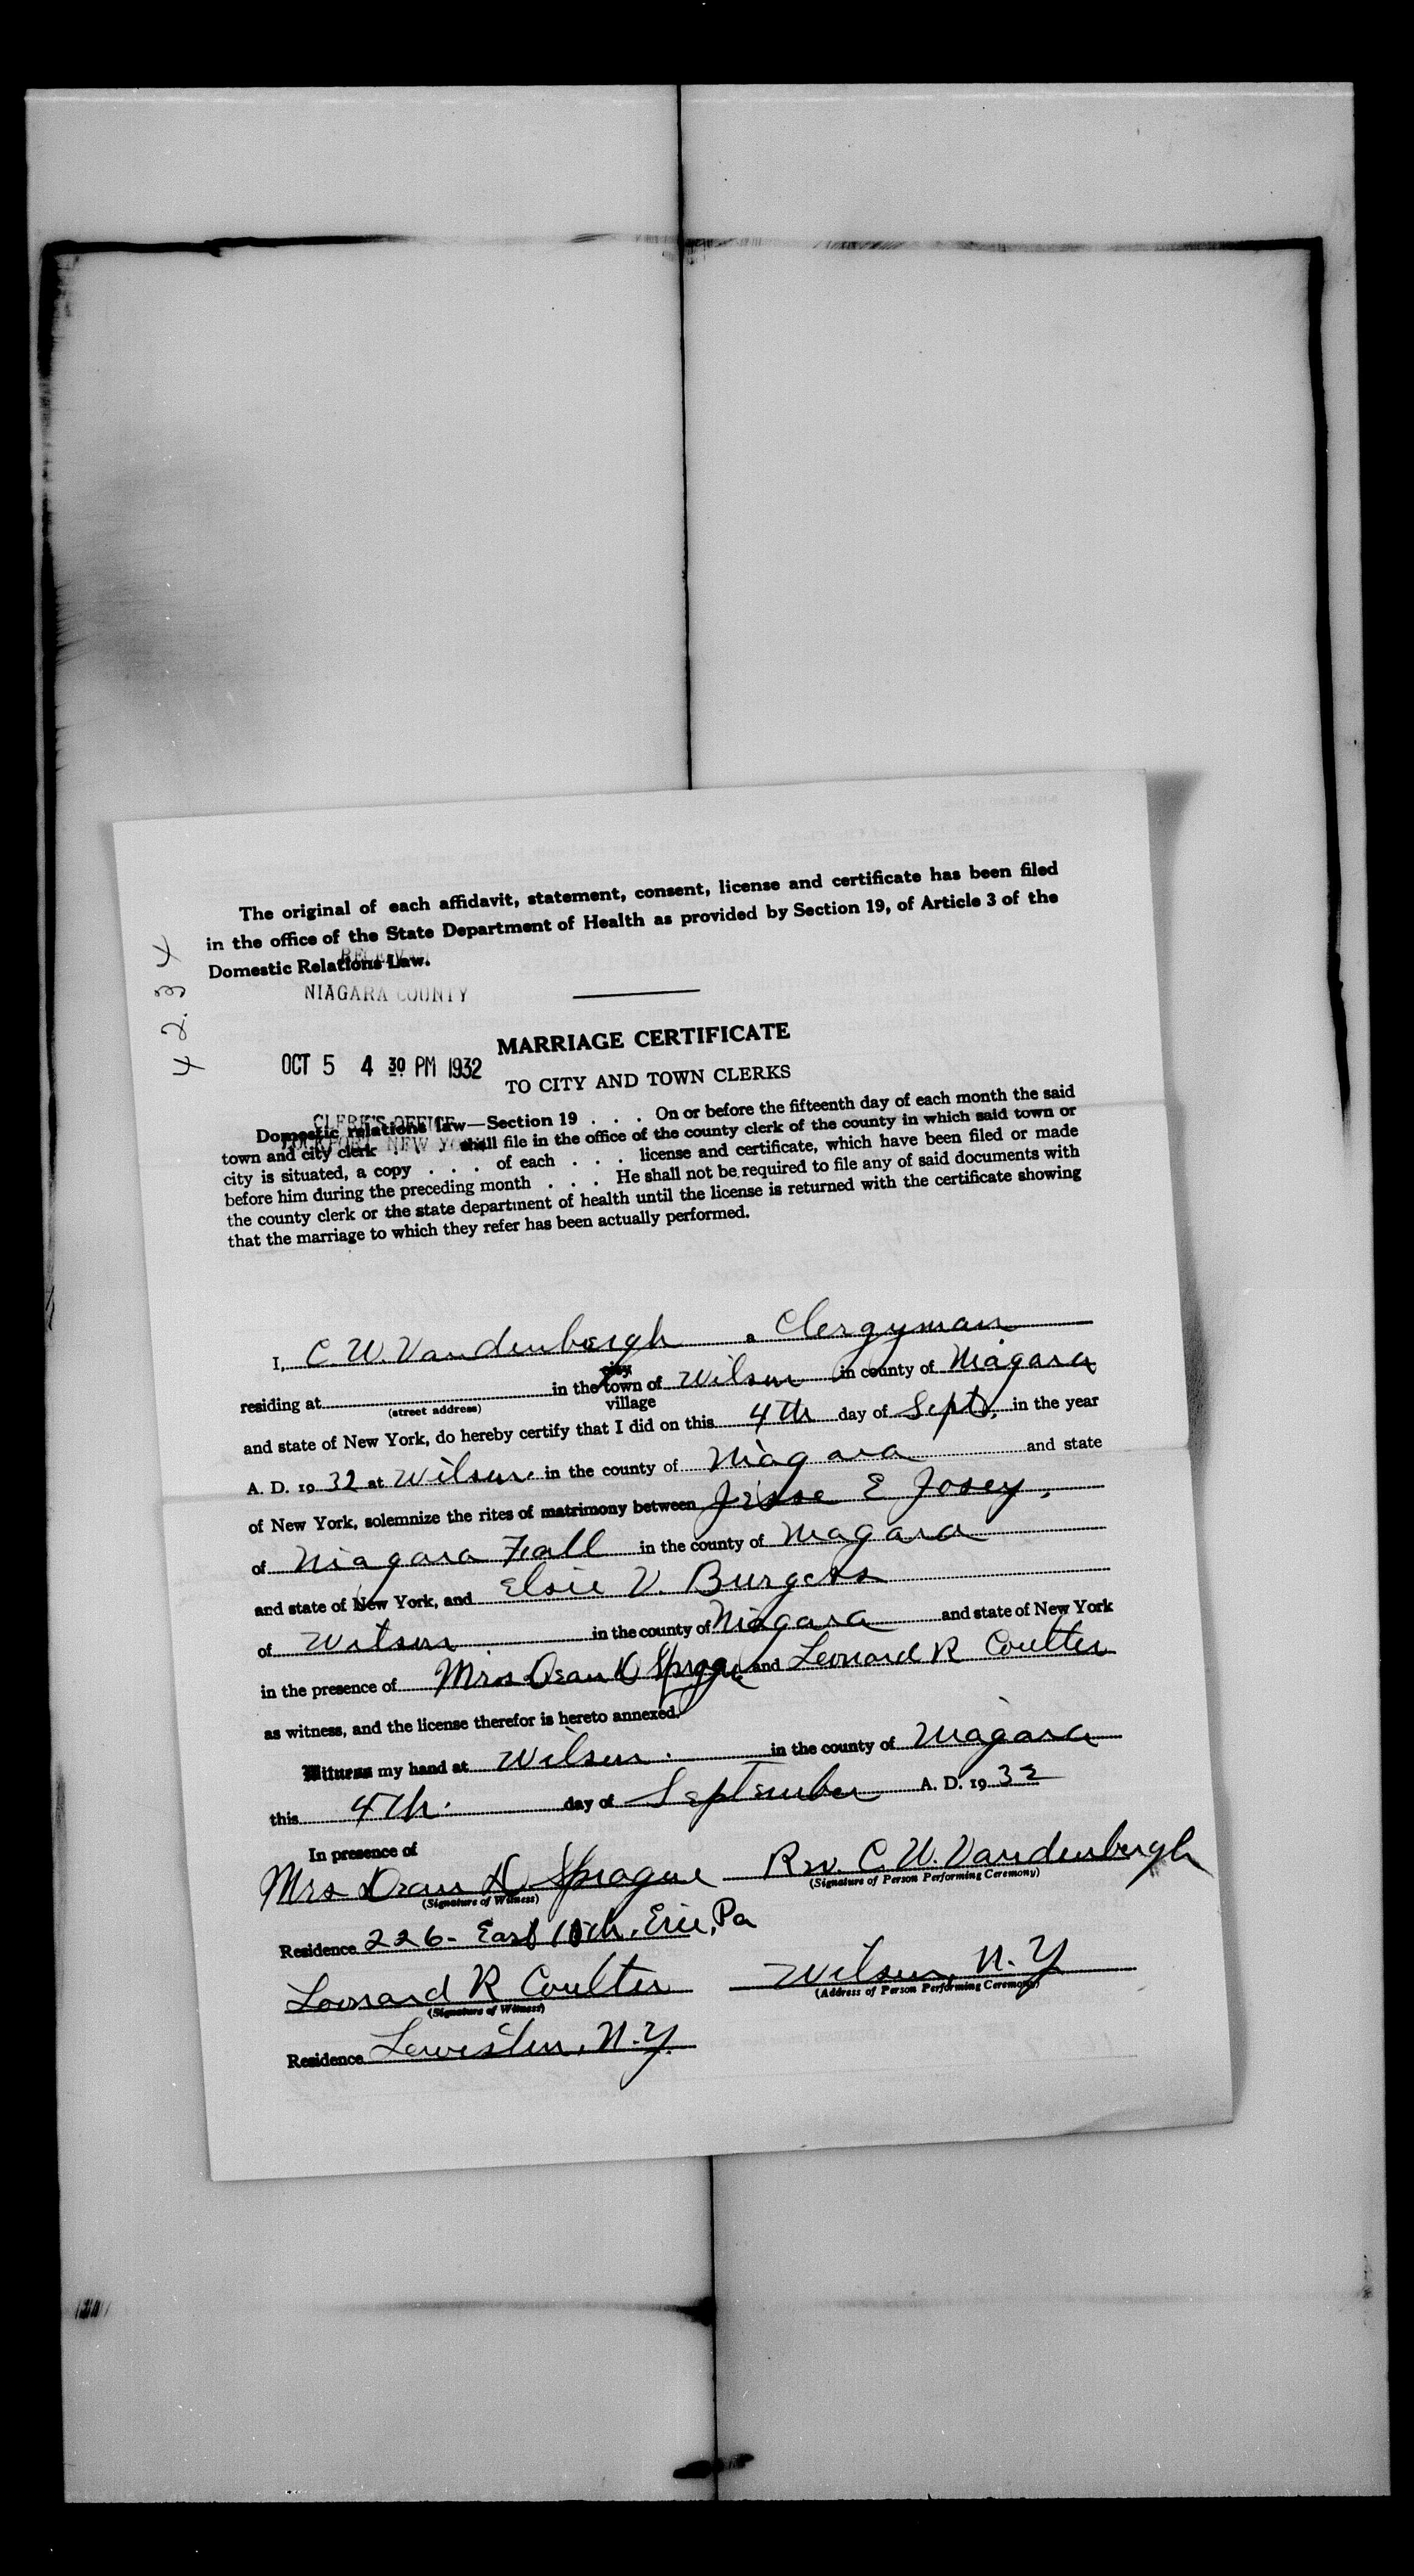 The original of each affidavit, statement, consent, license and certificate has been filed
in the office of the State Department of Health as provided by Section 19, of Article 3 of the
Domestic Relations Law.
NIAGARA COUNTY
4234
MARRIAGE CERTIFICATE
OCT 5 4 30 PM 1932
TO CITY AND TOWN CLERKS
CLERK'S OFFICE
NEW YORK
Domestic relations law—Section 19 . . . On or before the fifteenth day of each month the said
town and city clerk . . . shall file in the office of the county clerk of the county in which said town or
city is situated, a copy . . . of each . . . license and certificate, which have been filed or made
before him during the preceding month . . . He shall not be required to file any of said documents with
the county clerk or the state department of health until the license is returned with the certificate showing
that the marriage to which they refer has been actually performed.
I, C. W. Vandenbergh a Clergyman
city
residing at in the town of Wilson in county of Niagara
(street address) village
and state of New York, do hereby certify that I did on this 4th day of Sept. in the year
A. D. 19 32 at Wilson in the county of Niagara and state
of New York, solemnize the rites of matrimony between Jesse E Josey,
of Niagara Fall in the county of Niagara
and state of New York, and Elsie V. Burgess
of Wilson in the county of Niagara and state of New York
in the presence of Mrs Dean D Sprague and Leonard R Coulter
as witness, and the license therefor is hereto annexed.
Witness my hand at Wilson. in the county of Niagara
this 4th. day of September A. D. 19 32
In presence of
Mrs Dean D. Sprague Rev. C. W. Vandenbergh
(Signature of Witness) (Signature of Person Performing Ceremony)
Residence 226- East 10th, Erie, Pa
Leonard R Coulter Wilson, N.Y
(Signature of Witness) (Address of Person Performing Ceremony)
Residence Lewiston, N.Y.